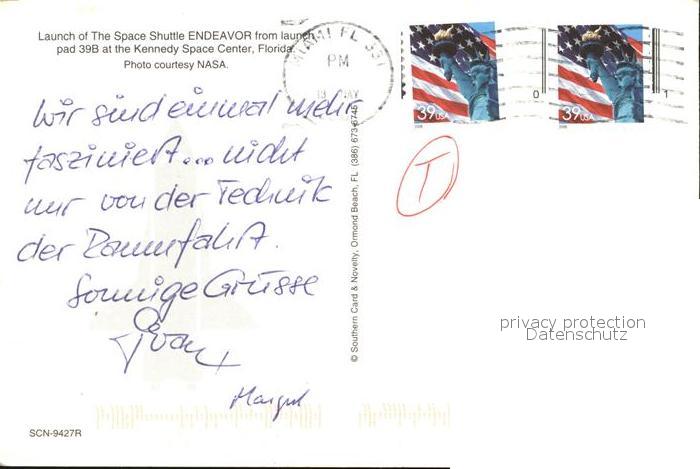 Launch of The Space Shuttle ENDEAVOR from launch
pad 39B at the Kennedy Space Center, Florida.
Photo courtesy NASA.
MIAMI FL 331
PM
13 MAY
39 USA
39 USA
0 1
T
Wir sind einmal mehr
fasziniert... nicht
nur von der Technik
der Raumfahrt.
Sonnige Grüsse
© Southern Card & Novelty, Ormond Beach, FL (386) 673-6745
privacy protection
Datenschutz
SCN-9427R